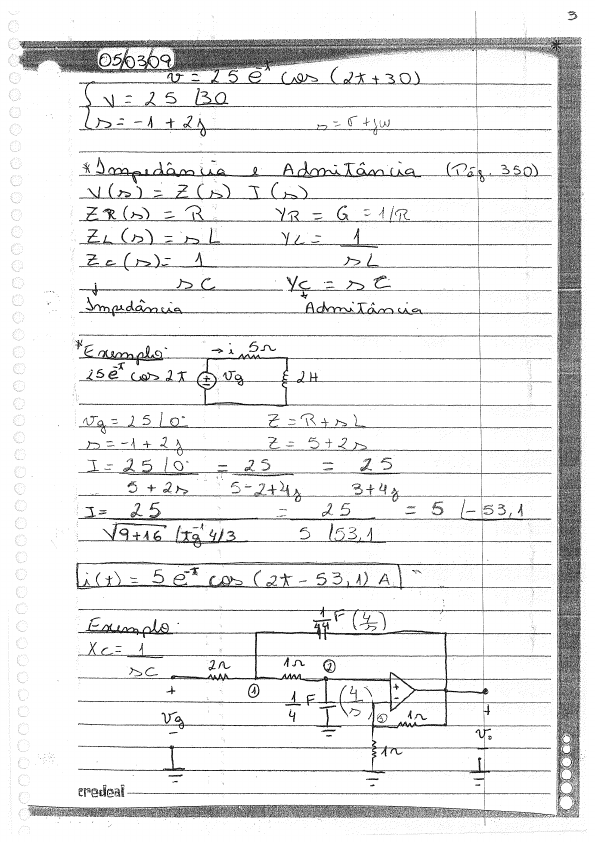 3
05/03/09
v = 25 e^-t cos (2t+30)
V = 25 /30
s = -1 + 2j s = σ + jw
* Impedância e Admitância (Pág. 350)
V(s) = Z(s) I(s)
ZR(s) = R YR = G = 1/R
ZL(s) = sL YL = 1
sL
ZC(s) = 1
sC YC = sC
Impedância Admitância
* Exemplo: → i 5Ω
25e^-t cos 2t Vg 2H
Vg = 25 /0° Z = R + sL
s = -1 + 2j Z = 5 + 2s
I = 25 /0° = 25 = 25
5 + 2s 5-2+4j 3+4j
I = 25 = 25 = 5 /-53,1
√9+16 /tg^-1 4/3 5 /53,1
i(t) = 5 e^-t cos (2t - 53,1) A
1/4 F (4/s)
Exemplo:
Xc = 1
sC
2Ω 1Ω ②
① 1/4 F (4/s) + - ③ 1Ω
+ Vg - + Vo -
1Ω
credeal